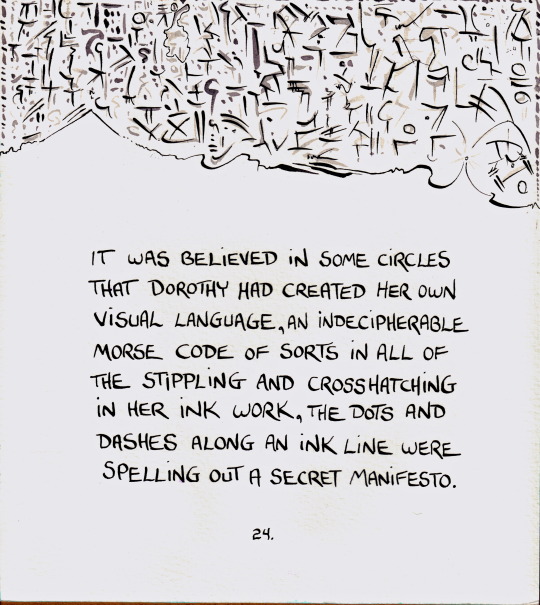 IT WAS BELIEVED IN SOME CIRCLES
THAT DOROTHY HAD CREATED HER OWN
VISUAL LANGUAGE, AN INDECIPHERABLE
MORSE CODE OF SORTS IN ALL OF
THE STIPPLING AND CROSSHATCHING
IN HER INK WORK, THE DOTS AND
DASHES ALONG AN INK LINE WERE
SPELLING OUT A SECRET MANIFESTO.
24.